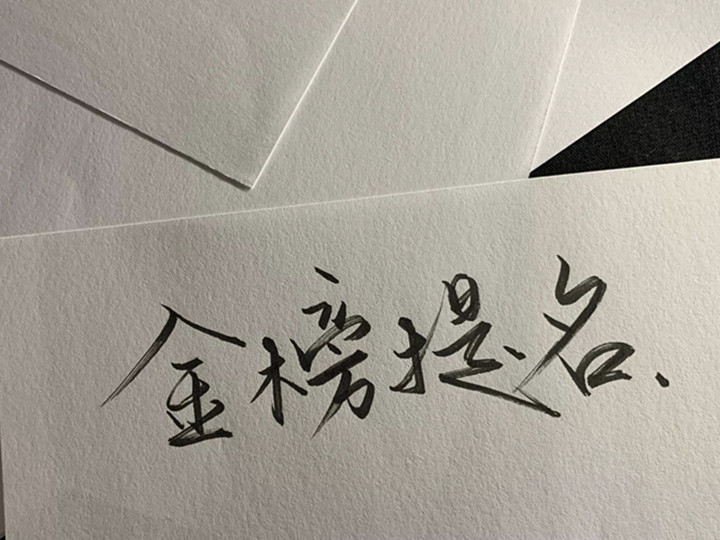 金榜提名.